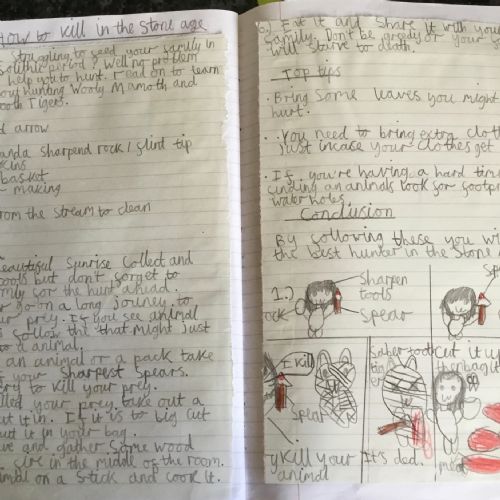 How to kill in the Stone age
Struggling to feed your family in
period? Well no problem
help you to hunt. read on to learn
about hunting Wooly Mamoth and
tooth Tigers.
arrow
and a sharpend rock / flint tip
skins
basket
making
from the stream to clean
beautiful sunrise collect and
tools but don't forget to
for the hunt ahead.
go on a long journey to
prey. If you see animal
follow it that might just
to a animal.
an animal or a pack take
your Sharpest Spears.
to kill your prey.
killed your prey, take out a
cut it in. If it is to big cut
put it in your bag.
and gather some wood
fire in the middle of the room.
on a stick and cook it.
6) Eat it and share it with your
family. Don't be greedy or your
will starve to death.
Top tips
. Bring some leaves you might
hurt.
. You need to bring extra clothes
just incase your clothes get
. If you're having a hard time
finding an animals look for footprints
water holes.
Conclusion
By following these you will
the best hunter in the Stone
1.)
Sharpen
tools
rock
spear
kill
Spear
Saber tooth
Cut it up
bag it
Kill your
animal
It's ded.
meat